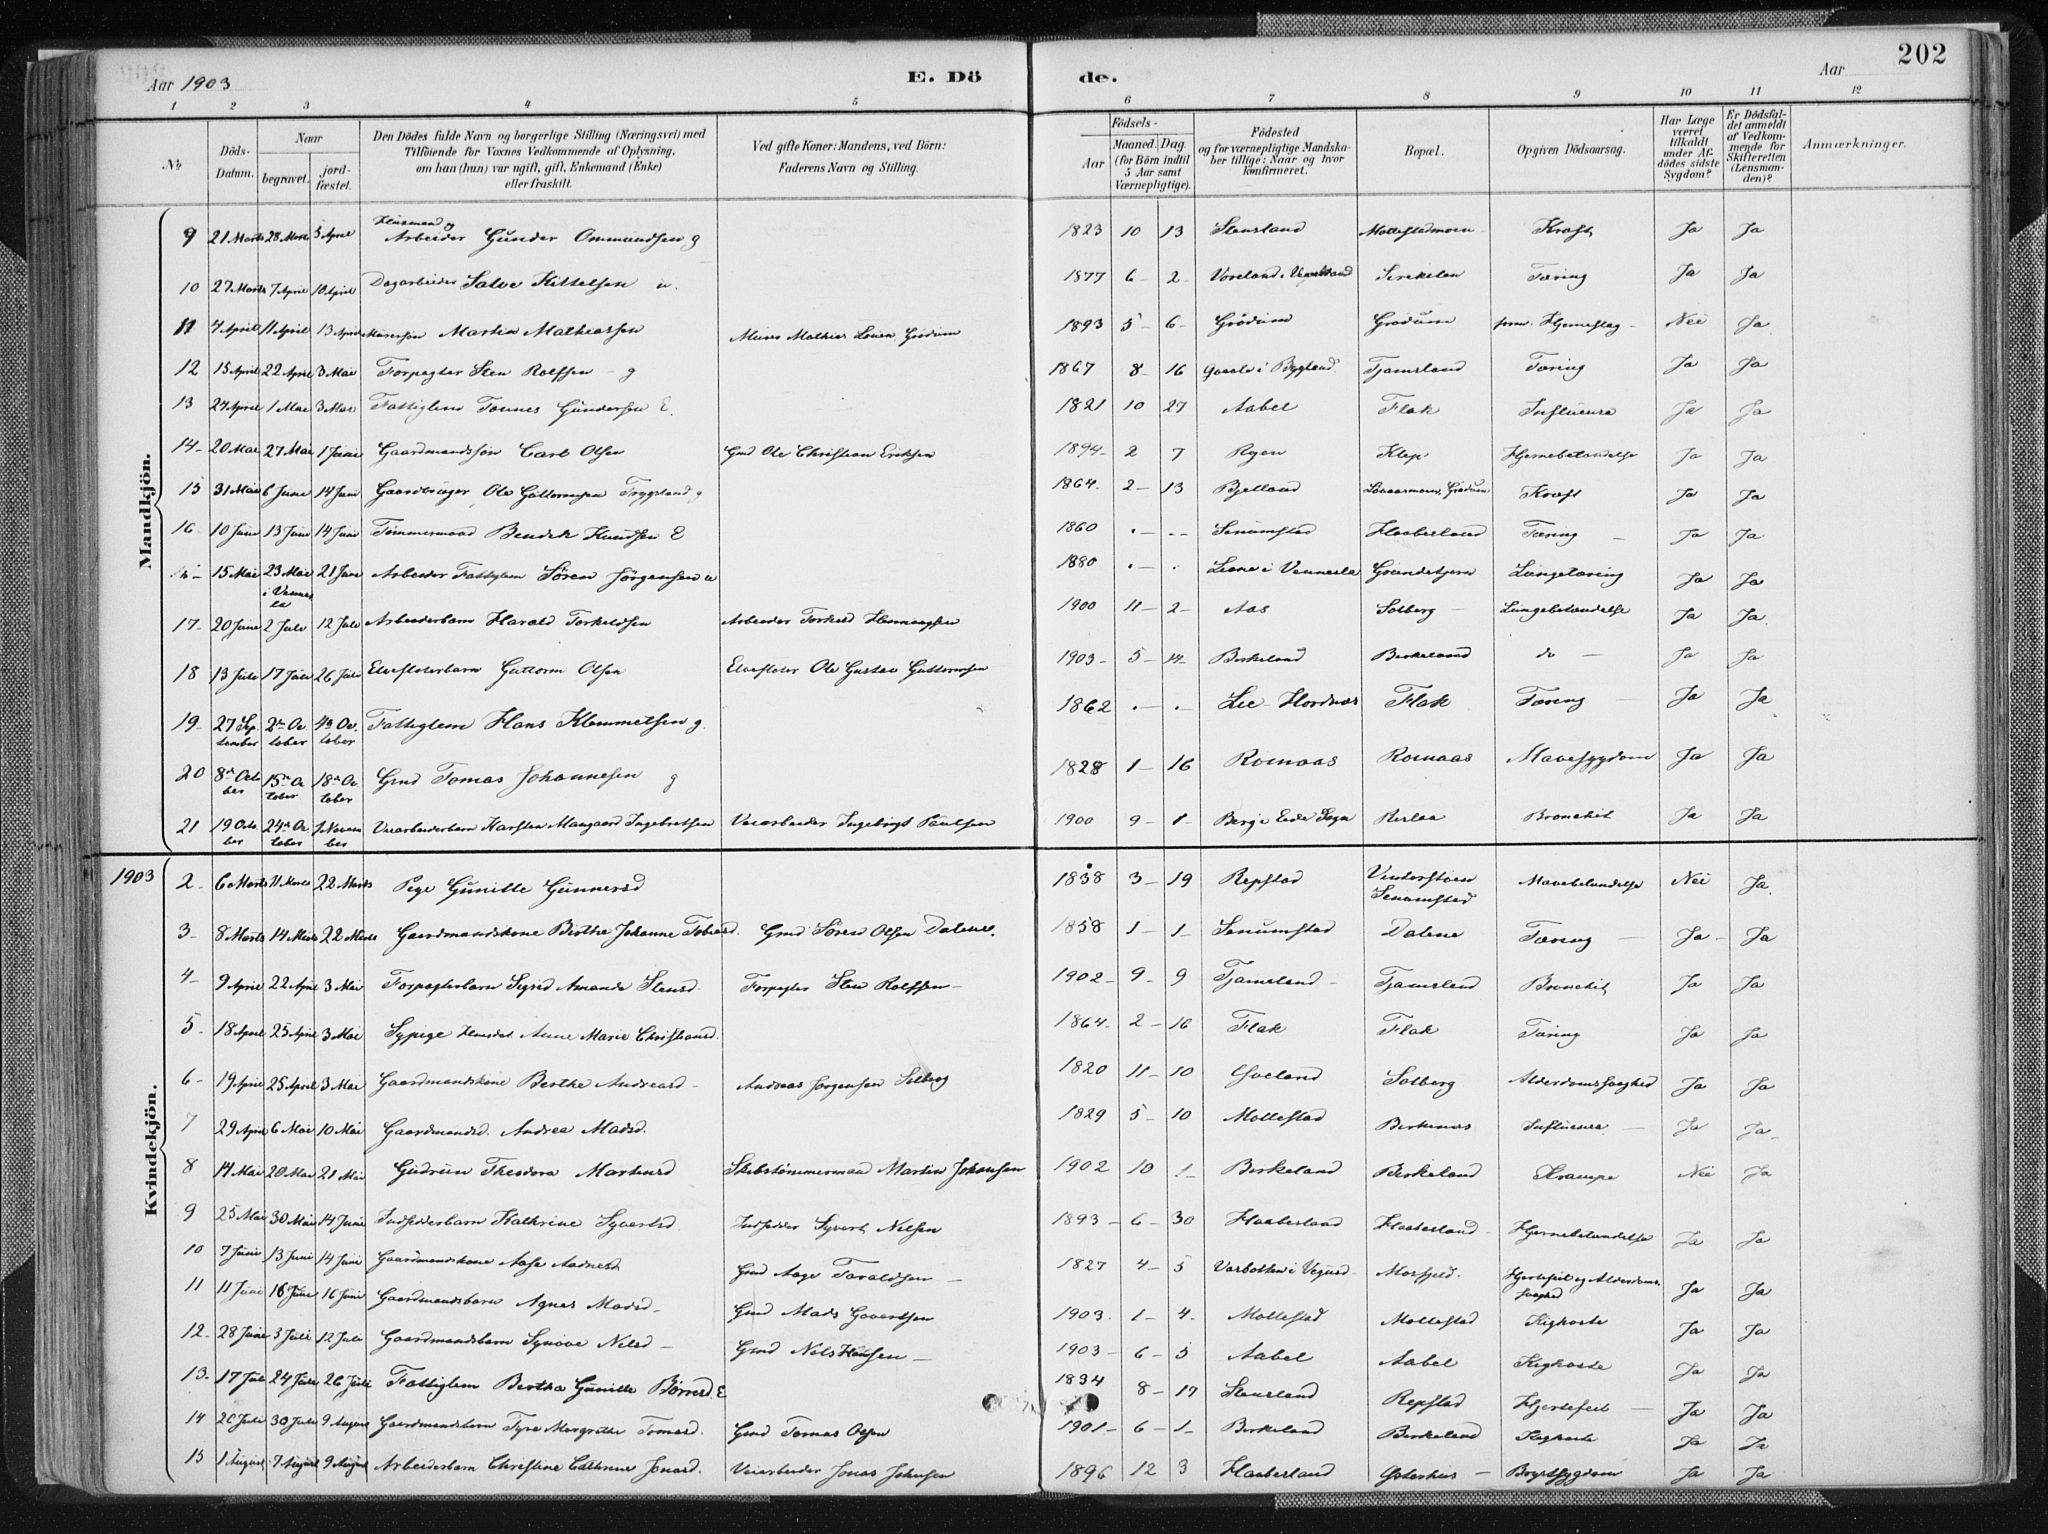 202
Aar 1903
E. Dö
de.
Aar
1 2 3 4 5 6 7 8 9 10 11 12
No
Döds-Datum.
Naar
begravet.
jord-fæstet.
Den Dödes fulde Navn og borgerlige Stilling (Næringsvei) med
Tilföiende for Voxnes Vedkommende af Oplysning,
om han (hun) var ugift, gift, Enkemand (Enke)
eller fraskilt.
Ved gifte Koner: Mandens, ved Börn:
Faderens Navn og Stilling.
Födsels-
Aar
Maaned. Dag.
(for Börn indtil
5 Aar samt
Værnepligtige).
Födested
og for værnepligtige Mandska-
ber tillige: Naar og hvor
konfirmeret.
Bopæl.
Opgiven Dödsaarsag.
Har Læge
været
tilkaldt
under Af-
dödes sidste
Sygdom?
Er Dödsfal-
det anmeldt
af Vedkom-
mende for
Skifteretten
(Lensman-
den)?
Anmærkninger.
Mandkjön.
9 21 Marts 28 Marts 5 April Husmand og Arbeider Gunder Ommundsen g 1823 10 13 Stensland Mollestadmoen Kræft Ja Ja
10 27 Marts 7 April 10 April Dagarbeider Salve Kittelsen u. 1877 6 2 Birkeland Tæring Ja Ja
11 7 April 11 April 13 April Martin Mathiassen Murer Mathias Grødum 1893 5 6 Grødum Grødum Hjerneslag Nei Ja
12 15 April 22 April 3 Mai Forpagter Sten Rolfsen g 1867 8 16 i Bygland Tjamsland Tæring Ja Ja
13 27 April 1 Mai 3 Mai Fattiglem Tønnes Gundersen E. 1821 10 27 Aabel Flak Influensa Ja Ja
14 20 Mai 27 Mai 1 Juni Gaardmandssøn Carl Olsen Gmd Ole Christian Eriksen 1894 2 7 Ryen Klep Hjernebetændelse Ja Ja
15 31 Mai 6 Juni 14 Juni Gaardbruger Ole Guttormsen Tryggstad g 1864 2 13 Bjelland Grødum Kræft Ja Ja
16 10 Juni 13 Juni 14 Juni Tømmermand Bendik Knudsen E 1860 Senumstad Haaberland Tæring Ja Ja
15 Mai 23 Mai i Vennesla 21 Juni Arbeider Fattiglem Søren Jørgensen u 1880 i Vennesla Lungetæring Ja Ja
17 20 Juni 2 Juli 12 Juli Arbeiderbarn Harald Torkeldsen Arbeider Torkeld Henningsen 1900 11 2 Aas Solberg Lungebetændelse Ja Ja
18 13 Juli 17 Juli 26 Juli Elvefløterbarn Guttorm Olsen Elvefløter Ole Gustav Guttormsen 1903 5 14 Birkeland Birkeland do Ja Ja
19 27 September 2n October 4n October Fattiglem Hans Klemmetsen g. 1862 Lie Hordnæs Flak Tæring Ja Ja
20 8n October 15n October 18n October Gmd Tomas Johannesen g 1828 1 16 Romaas Romaas Mavesygdom Ja Ja
21 19 October 24n October 1 November Veiarbeiderbarn Karsten Ingebretsen Veiarbeider Ingebrigt Paulsen 1900 9 1 Berg i Eide Sogn Bronchit Ja Ja
Kvindekjön.
1903 2 6 Marts 11 Marts 22 Marts Pige Gunille Gunnersd 1838 3 19 Repstad Senumstad Mavebetændelse Nei Ja
3 8 Marts 14 Marts 22 Marts Gaardmandskone Birthe Johanne Tobiasd. Gmd Søren Olsen Dalene. 1858 1 1 Senumstad Dalene Tæring Ja Ja
4 9 April 22 April 3 Mai Forpagterbarn Sigrid Amanda Stensd. Forpagter Sten Rolfsen 1902 9 9 Tjamsland Tjamsland Bronchit Ja Ja
5 18 April 25 April 3 Mai Sypige Anne Marie Christiansd. 1864 2 16 Flak Flak Tæring Ja Ja
6 19 April 25 April 3 Mai Gaardmandskone Berthe Andreasd Andreas Jørgensen Solberg 1820 11 10 Solberg Alderdomssvaghed Ja Ja
7 29 April 6 Mai 10 Mai Gaardmandsd. Andrea Madsd. 1829 5 10 Mollestad Birkenæs Influensa Ja Ja
8 14 Mai 20 Mai 21 Mai Gudrun Theodora Martinsd Skibstømmermand Martin Johansen 1902 10 1 Birkeland Birkeland Krampe Nei Ja
9 25 Mai 30 Mai 14 Juni Indsidderbarn Kathrine Syvertsd. Indsidder Syvert Nilsen 1893 6 30 Haaberland Haaberland Hjernebetændelse Ja Ja
10 7 Juni 13 Juni 14 Juni Gaardmandskone Aase Aadnesd Gmd Aage Taraldsen 1827 4 5 Hjertefeil og Alderdomssvaghed Ja Ja
11 11 Juni 16 Juni 16 Juni Gaardmandsbarn Agnes Madsd Gmd Mads Govertsen 1903 1 4 Mollestad Mollestad Kighoste Ja Ja
12 28 Juni 3 Juli 12 Juli Gaardmandsbarn Synøve Nilsd Gmd Nils Hansen 1903 6 5 Aabel Aabel Kighoste Ja Ja
13 17 Juli 24 Juli 26 Juli Fattiglem Bertha Gunille Børresd. E 1834 8 17 Stensland Repstad Hjertefeil Ja Ja
14 26 Juli 30 Juli 9 August Gaardmandsbarn Tyra Margrethe Tomasd. Gmd Tomas Olsen 1901 6 1 Birkeland Birkeland Kighoste Ja Ja
15 1 August 7 August 9 August Arbeiderbarn Christine Cathrine Jonasd. Veiarbeider Jonas Johnsen 1896 12 3 Haaberland Østerhus Brystsygdom Ja Ja